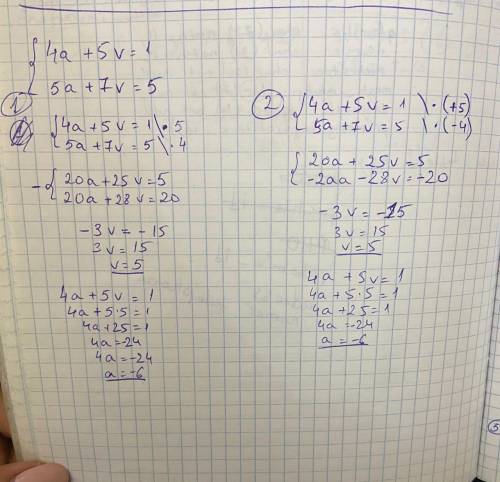 4a + 5v = 1
5a + 7v = 5
①
4a + 5v = 1 \ · 5
5a + 7v = 5 \ · 4
- 20a + 25v = 5
20a + 28v = 20
-3v = -15
3v = 15
v = 5
4a + 5v = 1
4a + 5·5 = 1
4a + 25 = 1
4a = -24
4a = -24
a = -6
②
4a + 5v = 1 \ · (+5)
5a + 7v = 5 \ · (-4)
20a + 25v = 5
-2aa - 28v = -20
-3v = -15
3v = 15
v = 5
4a + 5v = 1
4a + 5·5 = 1
4a + 25 = 1
4a = -24
a = -6
⑤